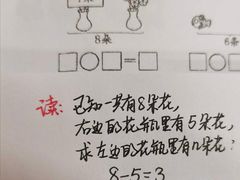 8朵
□○□=□ □○□=
读: 已知一共有8朵花,
右边的花瓶里有5朵花,
求左边的花瓶里有几朵花?
8-5=3